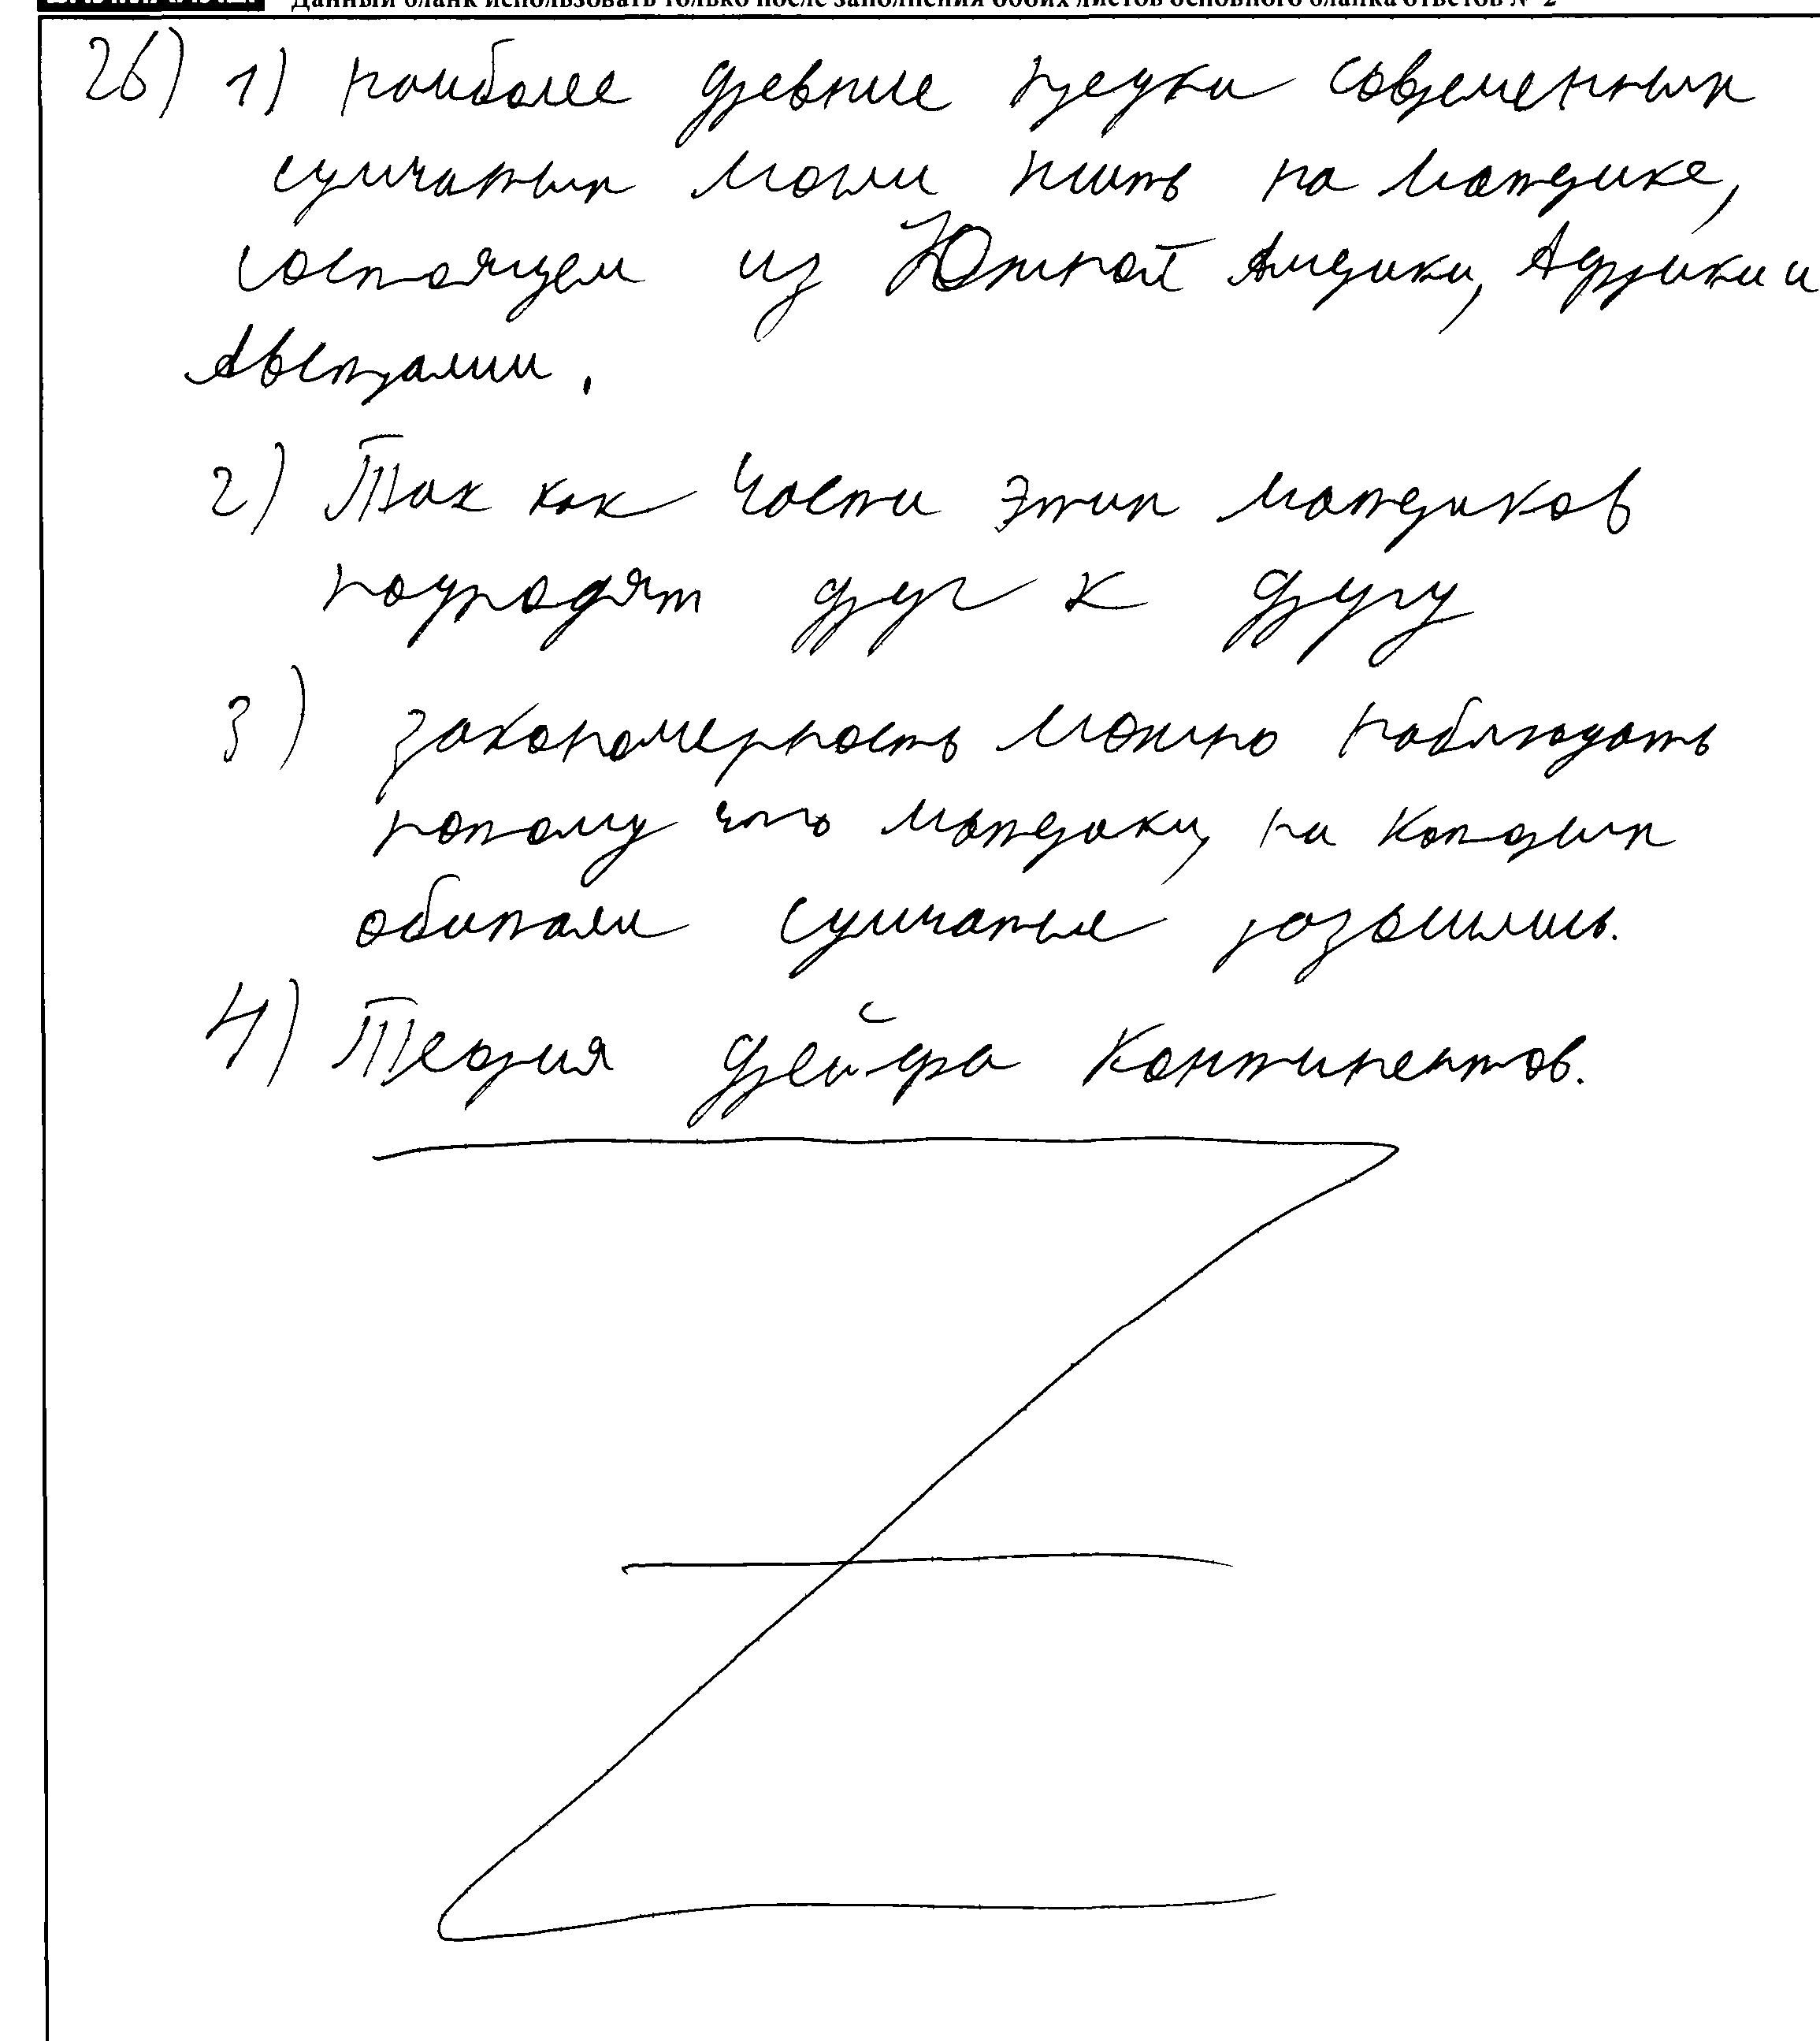 Данный бланк использовать только после заполнения обоих листов основного бланка ответов № 2
26) 1) наиболее древние предки современных
сумчатых могли жить на матерike,
состоящем из Южной Америки, Африки и
Австралии.
2) Так как части этих материков
подходят друг к другу
3) закономерность можно наблюдать
потому что материки, на которых
обитали сумчатые разошлись.
4) Теория дрейфа континентов.